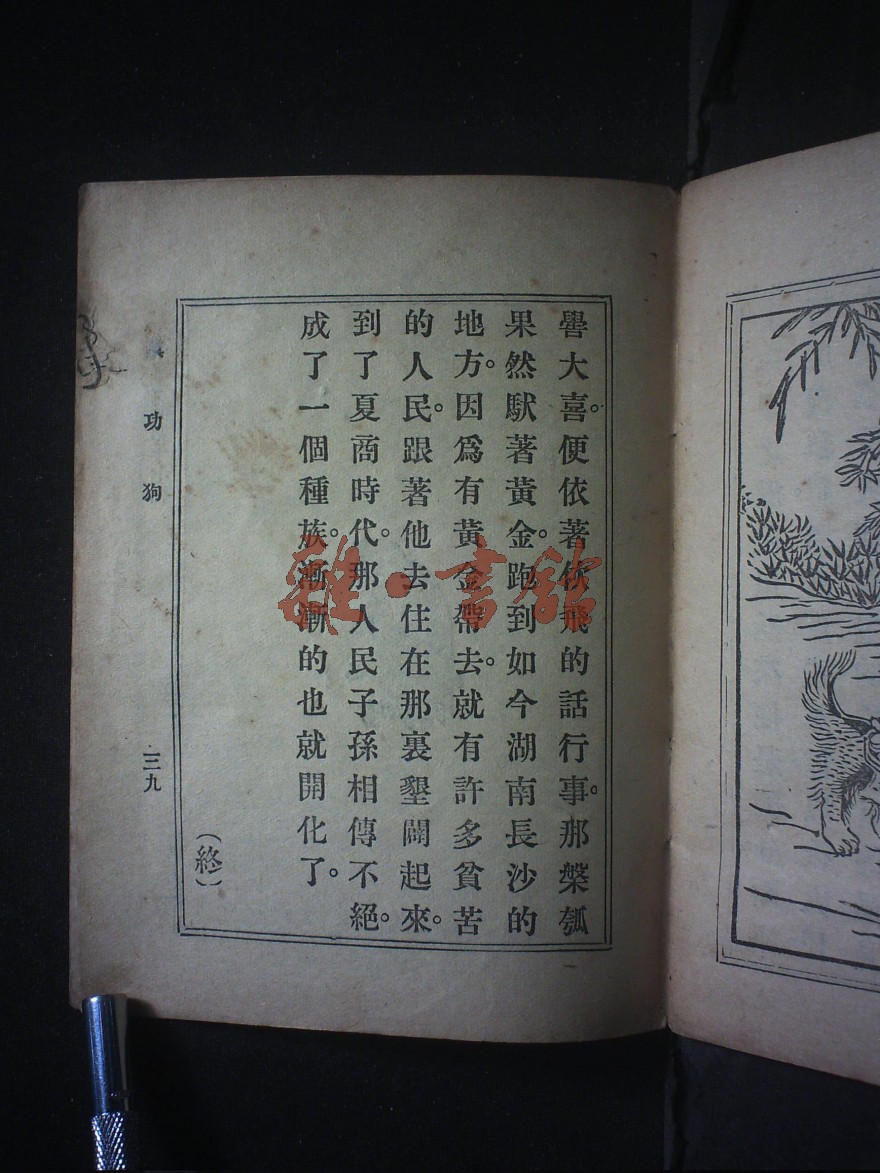 嚳大喜。便依著依飛的話行事。那槃瓠
果然馱著黃金。跑到如今湖南長沙的
地方。因爲有黃金帶去。就有許多貧苦
的人民。跟著他去住在那裏墾闢起來。
到了夏商時代。那人民子孫相傳不絕。
成了一個種族。漸漸的也就開化了。
（終）
功狗
三九
雜·書館